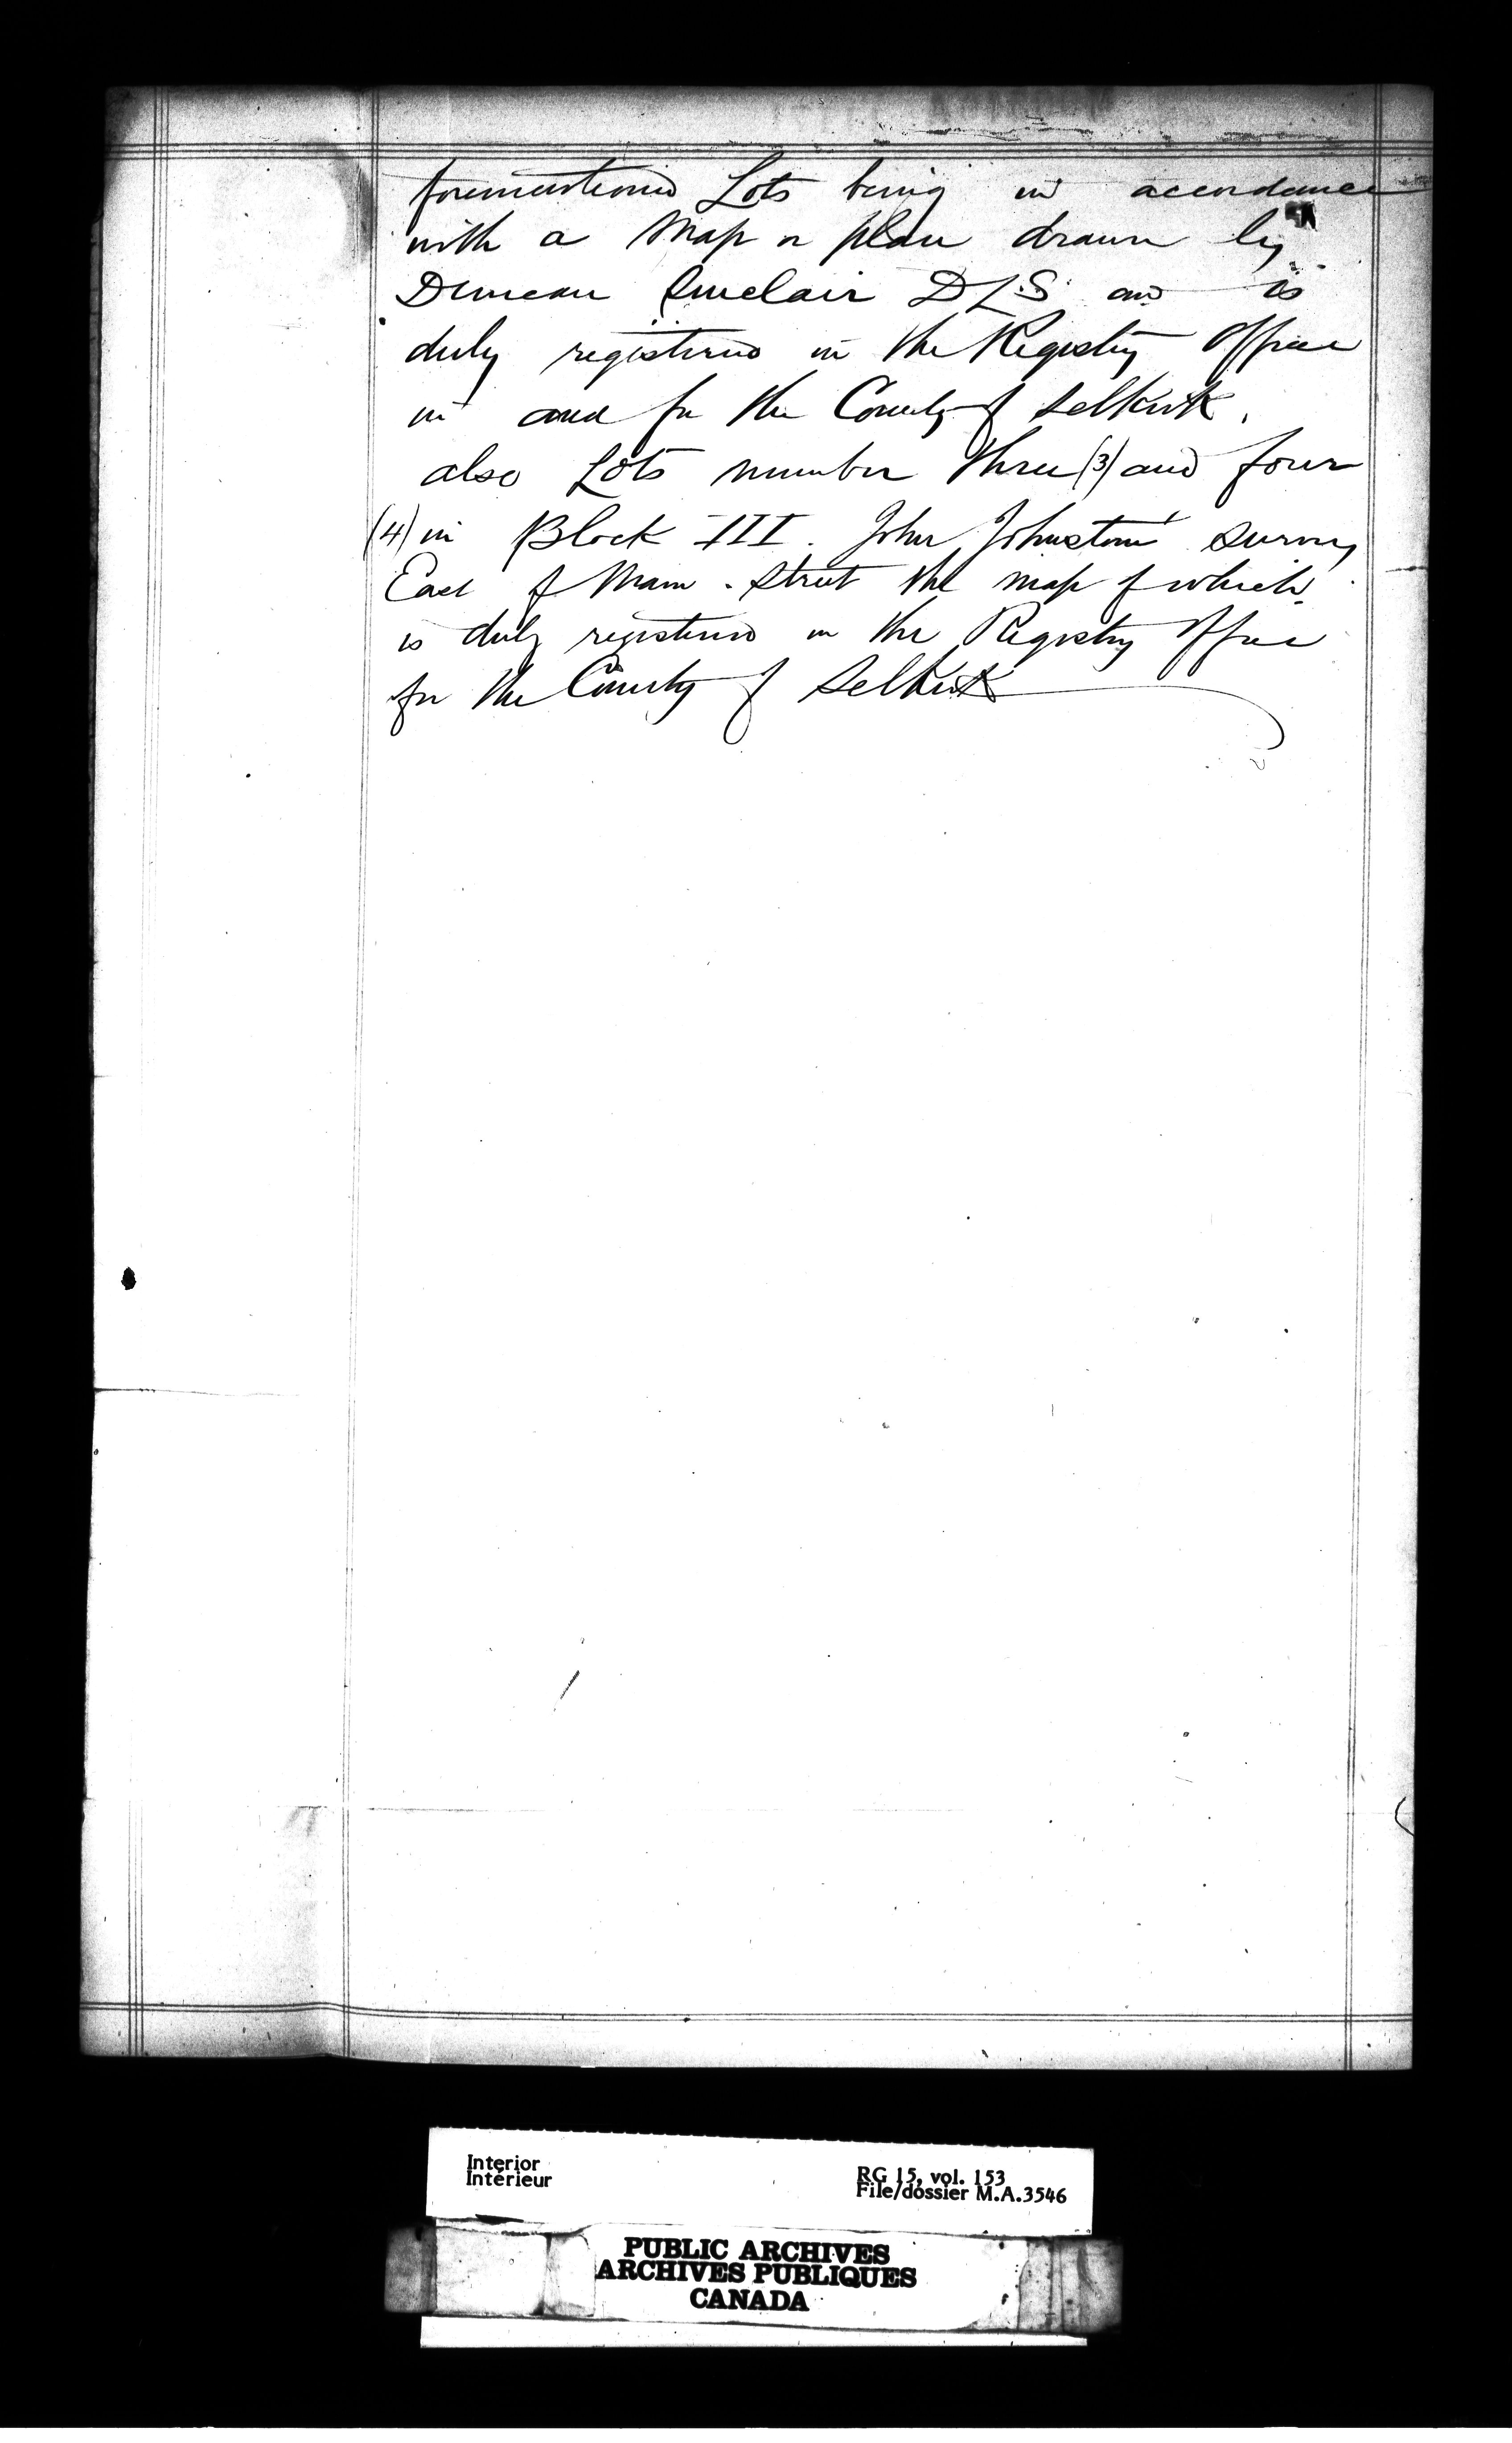 forementioned Lots being in accordance
with a Map or plan drawn by
Duncan Sinclair DLS and is
duly registered in the Registry Office
in and for the County of Selkirk,
also Lots number three (3) and four
(4) in Block III. John Johnston's survey
East of Main Street the map of which
is duly registered in the Registry Office
for the County of Selkirk
Interior
Intérieur
RG 15, vol. 153
File/dossier M.A.3546
PUBLIC ARCHIVES
ARCHIVES PUBLIQUES
CANADA